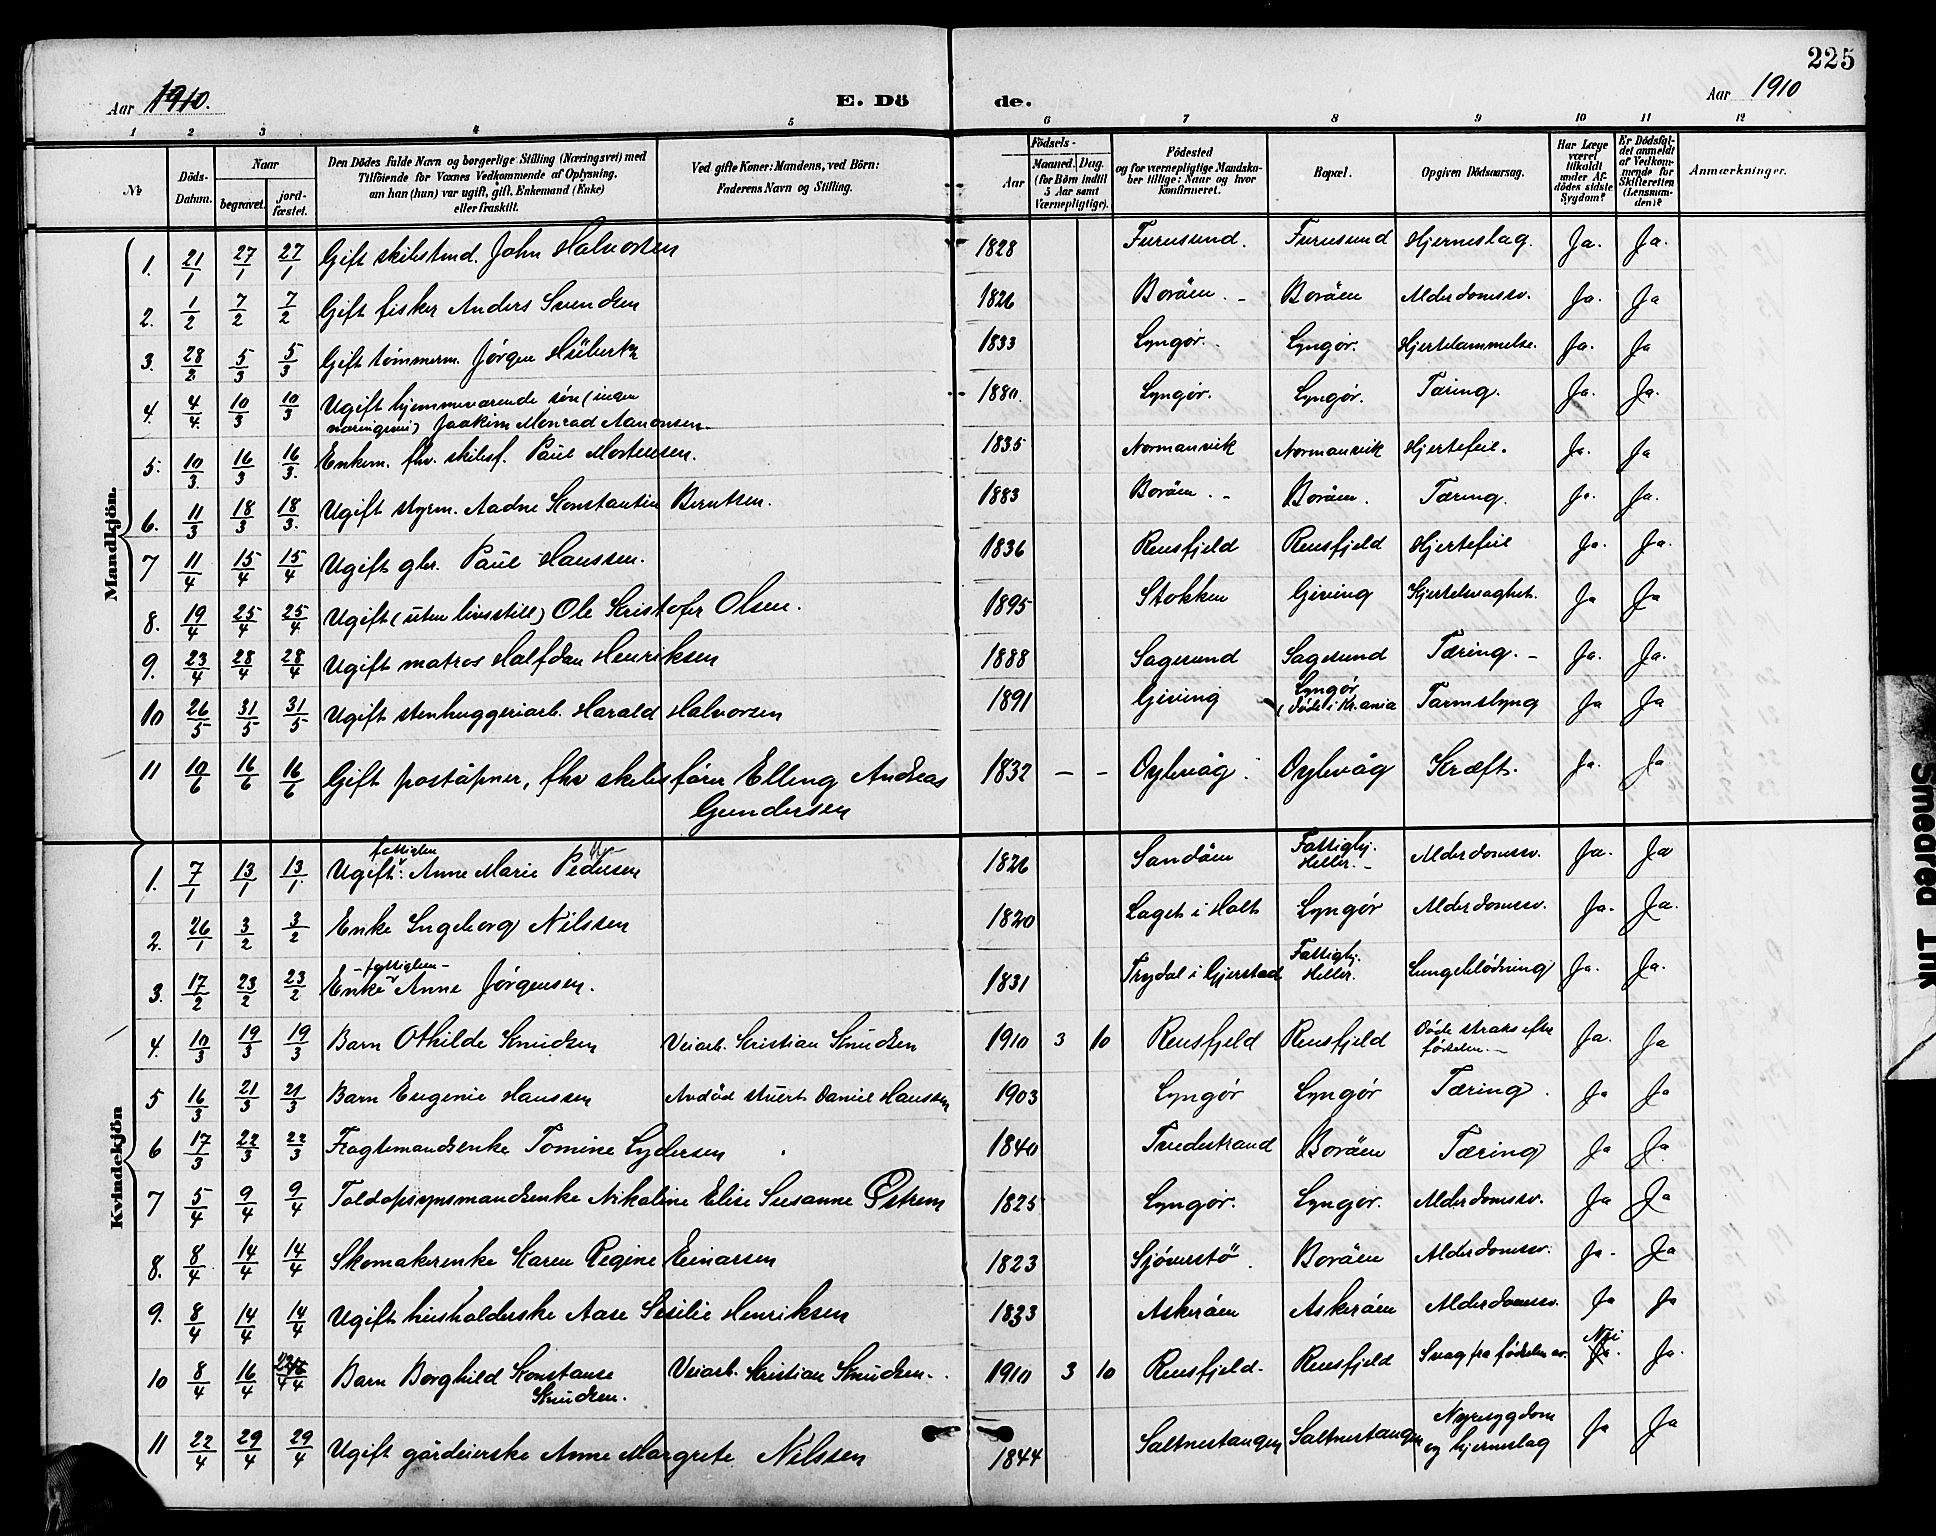 225
Aar 1910.
E. Dö de.
Aar 1910
1 2 3 4 5 6 7 8 9 10 11 12
№
Döds-Datum.
Naar
begravet.
jord-fæstet.
Den Dödes fulde Navn og borgerlige Stilling (Næringsvei) med Tilföiende for Voxnes Vedkommende af Oplysning, om han (hun) var ugift, gift, Enkemand (Enke) eller fraskilt.
Ved gifte Koner: Mandens, ved Börn: Faderens Navn og Stilling.
Födsels-
Aar
Maaned. Dag. (for Börn indtil 5 Aar samt Værnepligtige).
Födested og for værnepligtige Mandskaber tillige: Naar og hvor konfirmeret.
Bopæl.
Opgiven Dödsaarsag.
Har Læge været tilkaldt under Afdödes sidste Sygdom?
Er Dödsfaldet anmeldt af Vedkommende for Skifteretten (Lensmanden)?
Anmærkninger.
Mandkjön.
1. 21/1 27/1 27/1 Gift skibstmd. John Halvorsen 1828 Furusund. Furusund Hjerneslag. Ja. Ja.
2. 1/2 7/2 7/2 Gift fisker Anders Svendsen 1826 Boröen. - Boröen Alderdomssv. Ja. Ja
3. 28/2 5/3 5/3 Gift tömmerm. Jörgen Hübertz 1833 Lyngør. Lyngør. Hjertelammelse. Ja. Ja
4. 4/4 10/3 10/3 Ugift hjemmeværende sön (ingen
næringsvei) Joakim Monrad Aanonsen. 1880. Lyngør. Lyngør. Tæring. Ja. Ja.
5. 10/3 16/3 16/3 Enkem. fhv. skibsf. Paul Mortensen. 1835 Normanvik Normanvik Hjertefeil. Ja. Ja
6. 11/3 18/3 18/3 Ugift styrm. Aadne Konstantin Berntsen. 1883 Boröen. - Boröen. Tæring. Ja. Ja.
7 11/4 15/4 15/4 Ugift gbr. Paul Hanssen. 1836 Rensfjeld Rensfjeld Hjertefeil Ja. Ja.
8. 19/4 25/4 25/4 Ugift (uten livsstill) Ole Kristofer Olsen. 1895 Stokken Giving Hjertesvaghet. Ja Ja
9. 23/4 28/4 28/4 Ugift matros Halfdan Henriksen 1888 Sagesund Sagesund Tæring. - Ja. Ja.
10 26/5 31/5 31/5 Ugift stenhuggeriarb. Harald Halvorsen 1891 Giving Lyngør
(døde i Kr.ania Tarmslyng Ja Ja
11 10/6 16/6 16/6 Gift poståpner, fhv skibsförer Elling Andreas
Gundersen 1832 - - Oylvåg. Oylvåg Kræft. Ja. Ja
Kvindekjön
1. 7/1 13/1 13/1. Ugift fattiglem Anne Marie Pedersen 1826 Sandöen Fattighj.
Heller. - Alderdomssv. Ja. Ja
2. 26/1 3/2 3/2 Enke Ingeborg Nilssen 1820 Laget i Holt Lyngör Alderdomssv. Ja. Ja.
3. 17/2 23/2 23/2 Enke -fattiglem- Anne Jörgensen. 1831 Trydal i Gjerstad Fattighj.
Heller. Lungeblödning Ja. Ja.
4. 10/3 19/3 19/3 Barn Othilde Knudsen Veiarb. Kristian Knudsen 1910 3 10 Rensfjeld Rensfjeld Döde straks efter
födselen. - Ja. Ja
5 16/3 21/3 21/3 Barn Eugenie Hanssen Avdöd stuert Daniel Hanssen 1903 Lyngör Lyngör Tæring. Ja Ja
6 17/3 22/3 22/3 Fragtemandsenke Tomine Lydersen 1840 Tvedestrand Boröen Tæring Ja Ja
7 5/4 9/4 9/4 Toldopsynsmandsenke Nikoline Elise Susanne Östrem 1825 Lyngør. Lyngør. Alderdomssv. Ja Ja
8. 8/4 14/4 14/4 Skomakerenke Karen Regine Einarsen 1823 Sjöverstö. Boröen Alderdomssv. Ja. Ja
9. 8/4 14/4 14/4 Ugift husholderske Aase Sesilie Henriksen 1833 Askeröen Askeröen Alderdomssv. Ja Ja
10 8/4 16/4 Barn Borghild Konstanse
Knudsen. Veiarb. Kristian Knudsen. 1910 3 10 Rensfjeld. Rensfjeld Svag fra födselen av. Nei Ja. Ja.
11 22/4 29/4 29/4 Ugift gårdeierske Anne Margrete Nilssen 1844 Saltnestangen Saltnestangen Nyresygdom
og hjerneslag Ja Ja
Smeared Ink